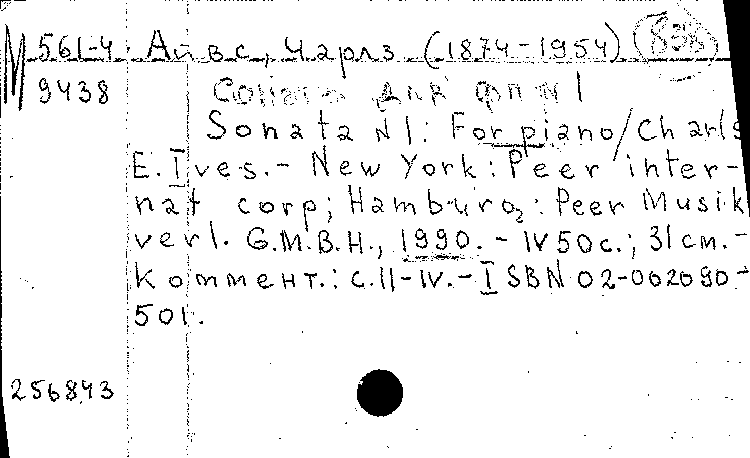 М 561-4 Айвс, Чарлз (1874-1954)
9438 Соната для фп N 1
Sonata N1: For piano/Charls
E. Ives. - New York: Peer inter-
nat corp; Hamburg: Peer Musik
verl. G.M.B.H., 1990. - IV 50 с.; 31 см. -
Коммент.: с. II-IV. - ISBN 02-002090-
501.
256843